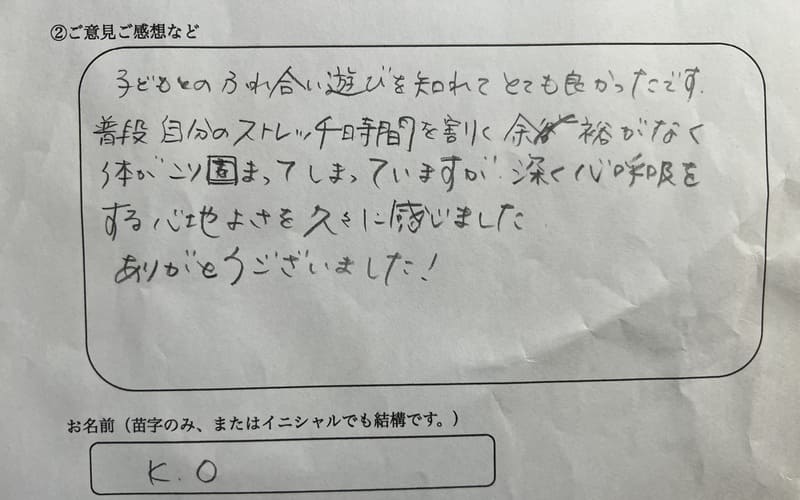 ②ご意見ご感想など
子どもとのふれ合い遊びを知れてとても良かったです.
普段 自分のストレッチ時間を割く余裕がなく
体がこり固まってしまっていますが 深く 呼吸を
する心地よさを久々に感じました
ありがとうございました!
お名前（苗字のみ、またはイニシャルでも結構です。）
K.O